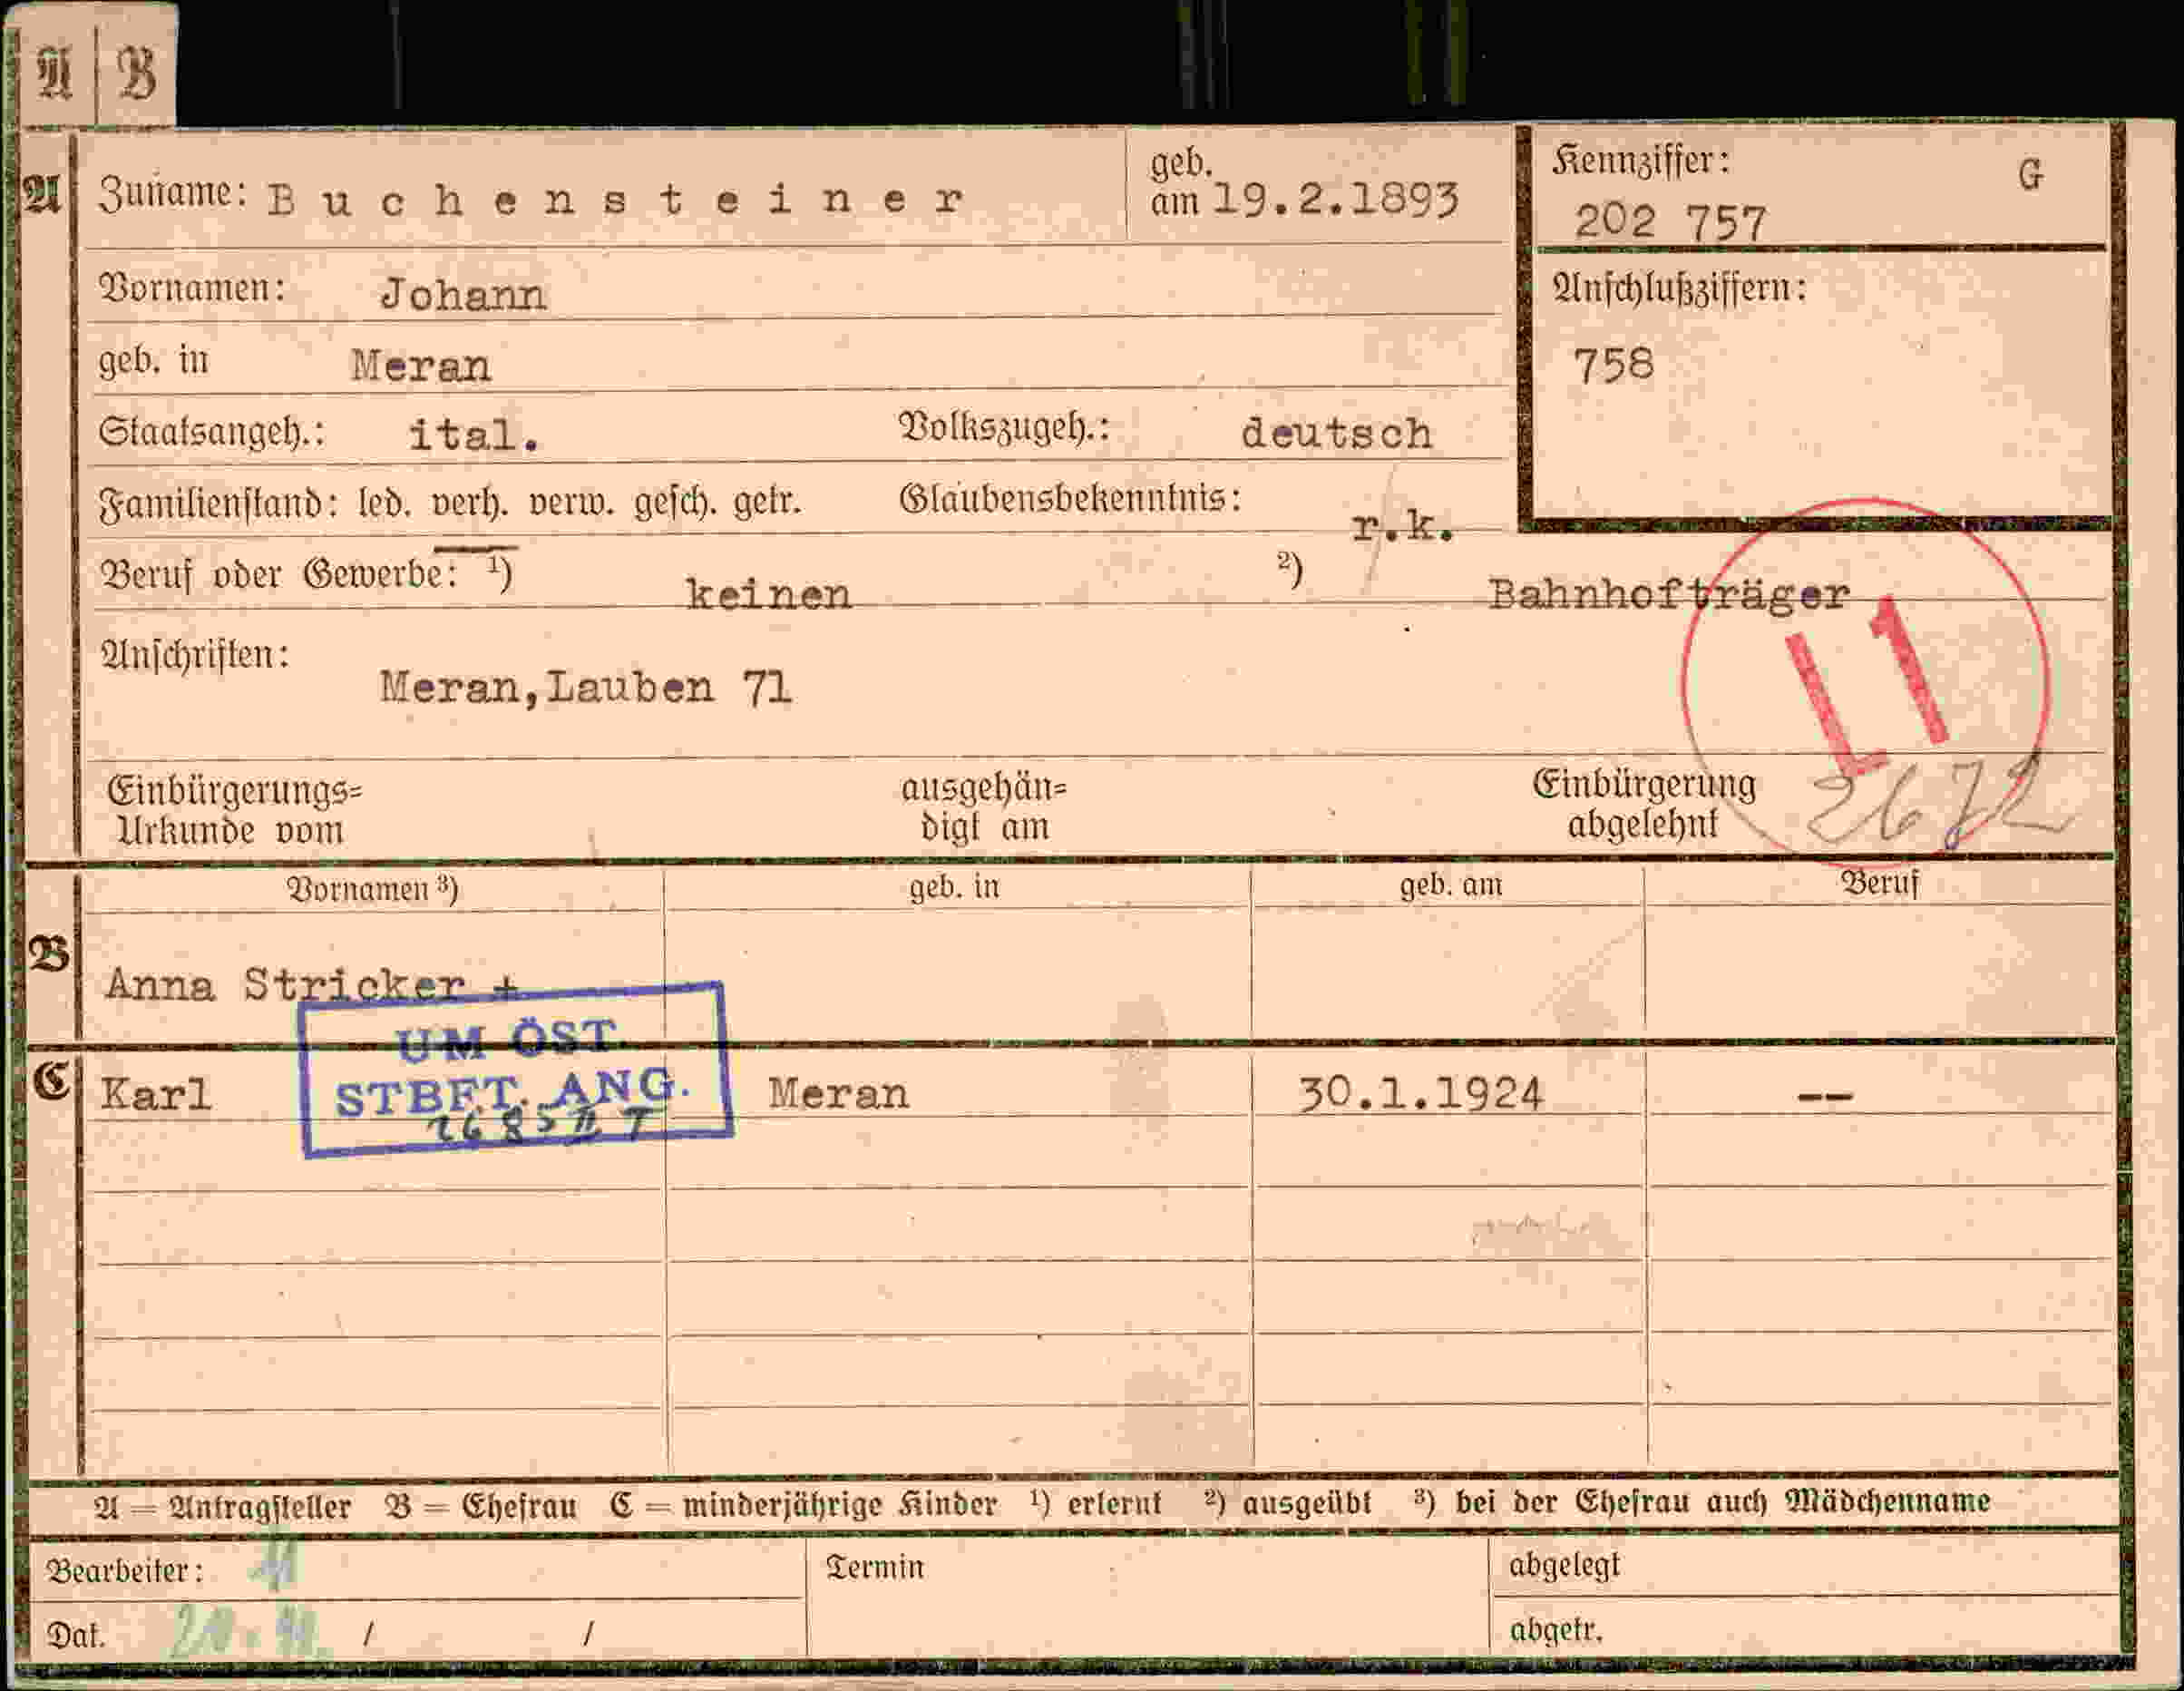 A B
A Zuname: Buchensteiner geb. am 19.2.1893 Kennziffer: G
202 757
Vornamen: Johann Anschlußziffern:
geb. in Meran 758
Staatsangeh.: ital. Volkszugeh.: deutsch
Familienstand: led. verh. verw. gesch. getr. Glaubensbekenntnis: r.k.
Beruf oder Gewerbe: ¹) keinen ²) Bahnhofträger
Anschriften: Meran,Lauben 71
L1
Einbürgerungs= ausgehän= Einbürgerung 2672
Urkunde vom digt am abgelehnt
Vornamen ³) geb. in geb. am Beruf
B Anna Stricker +
UM ÖST.
STBFT. ANG.
C Karl Meran 30.1.1924 --
A = Antragsteller B = Ehefrau C = minderjährige Kinder ¹) erlernt ²) ausgeübt ³) bei der Ehefrau auch Mädchenname
Bearbeiter: Termin abgelegt
Dat. / / abgetr.